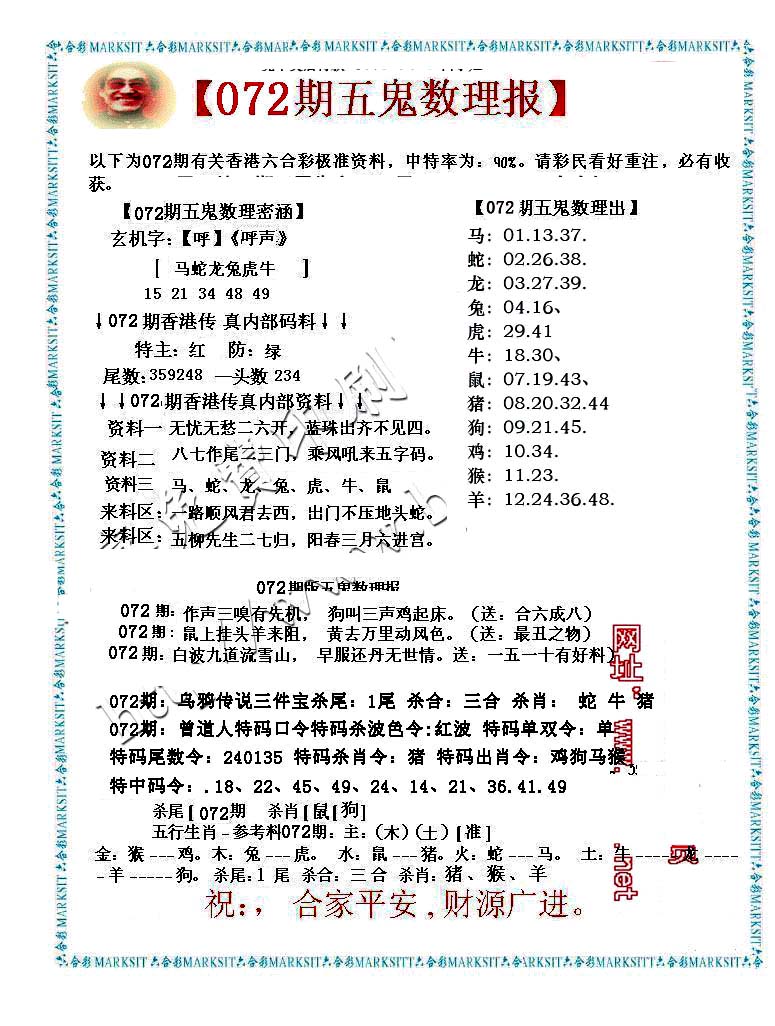 合彩 MARKSIT 六合彩 MARKSIT 六合彩 MARKSIT 六合彩 MARKSIT 六合彩 MARKSIT 六合彩 MARKSITT 六合彩 MARKSIT
【072期五鬼数理报】
以下为072期有关香港六合彩极准资料，中特率为：90%。请彩民看好重注，必有收
获。
【072期五鬼数理密涵】
玄机字：【呼】《呼声》
[ 马蛇龙兔虎牛 ]
15 21 34 48 49
↓072期香港传 真内部码料↓↓
特主：红 防：绿
尾数：359248 一头数 234
↓↓072期香港传真内部资料↓↓
资料一 无忧无愁二六开，蓝珠出齐不见四。
资料二 八七作尾三三门，乘风吼来五字码。
资料三 马、蛇、龙、兔、虎、牛、鼠
来料区：一路顺风君去西，出门不压地头蛇。
来料区：五柳先生二七归，阳春三月六进宫。
【072期五鬼数理出】
马：01.13.37.
蛇：02.26.38.
龙：03.27.39.
兔：04.16、
虎：29.41
牛：18.30、
鼠：07.19.43、
猪：08.20.32.44
狗：09.21.45.
鸡：10.34.
猴：11.23.
羊：12.24.36.48.
072期版五鬼数理报
072期：作声三嗅有先机， 狗叫三声鸡起床。（送：合六成八）
072期：鼠上挂头羊来阻， 黄去万里动风色。（送：最丑之物）
072期：白波九道流雪山， 早服还丹无世情。送：一五一十有好料）
072期：乌鸦传说三件宝杀尾：1尾 杀合：三合 杀肖： 蛇 牛 猪
072期：曾道人特码口令特码杀波色令:红波 特码单双令：单
特码尾数令：240135 特码杀肖令：猪 特码出肖令：鸡狗马猴
特中码令：.18、22、45、49、24、14、21、36.41.49
杀尾[072期 杀肖[鼠[狗]
五行生肖－参考料072期：主：（木）（土）[准]
金：猴 --- 鸡。木：兔 --- 虎。 水：鼠 --- 猪。火：蛇 --- 马。 土：牛 ----- 龙 -----
- 羊 ----- 狗。 杀尾:1 尾 杀合：三合 杀肖：猪、猴、羊
祝：， 合家平安，财源广进。
网址：www.
.net